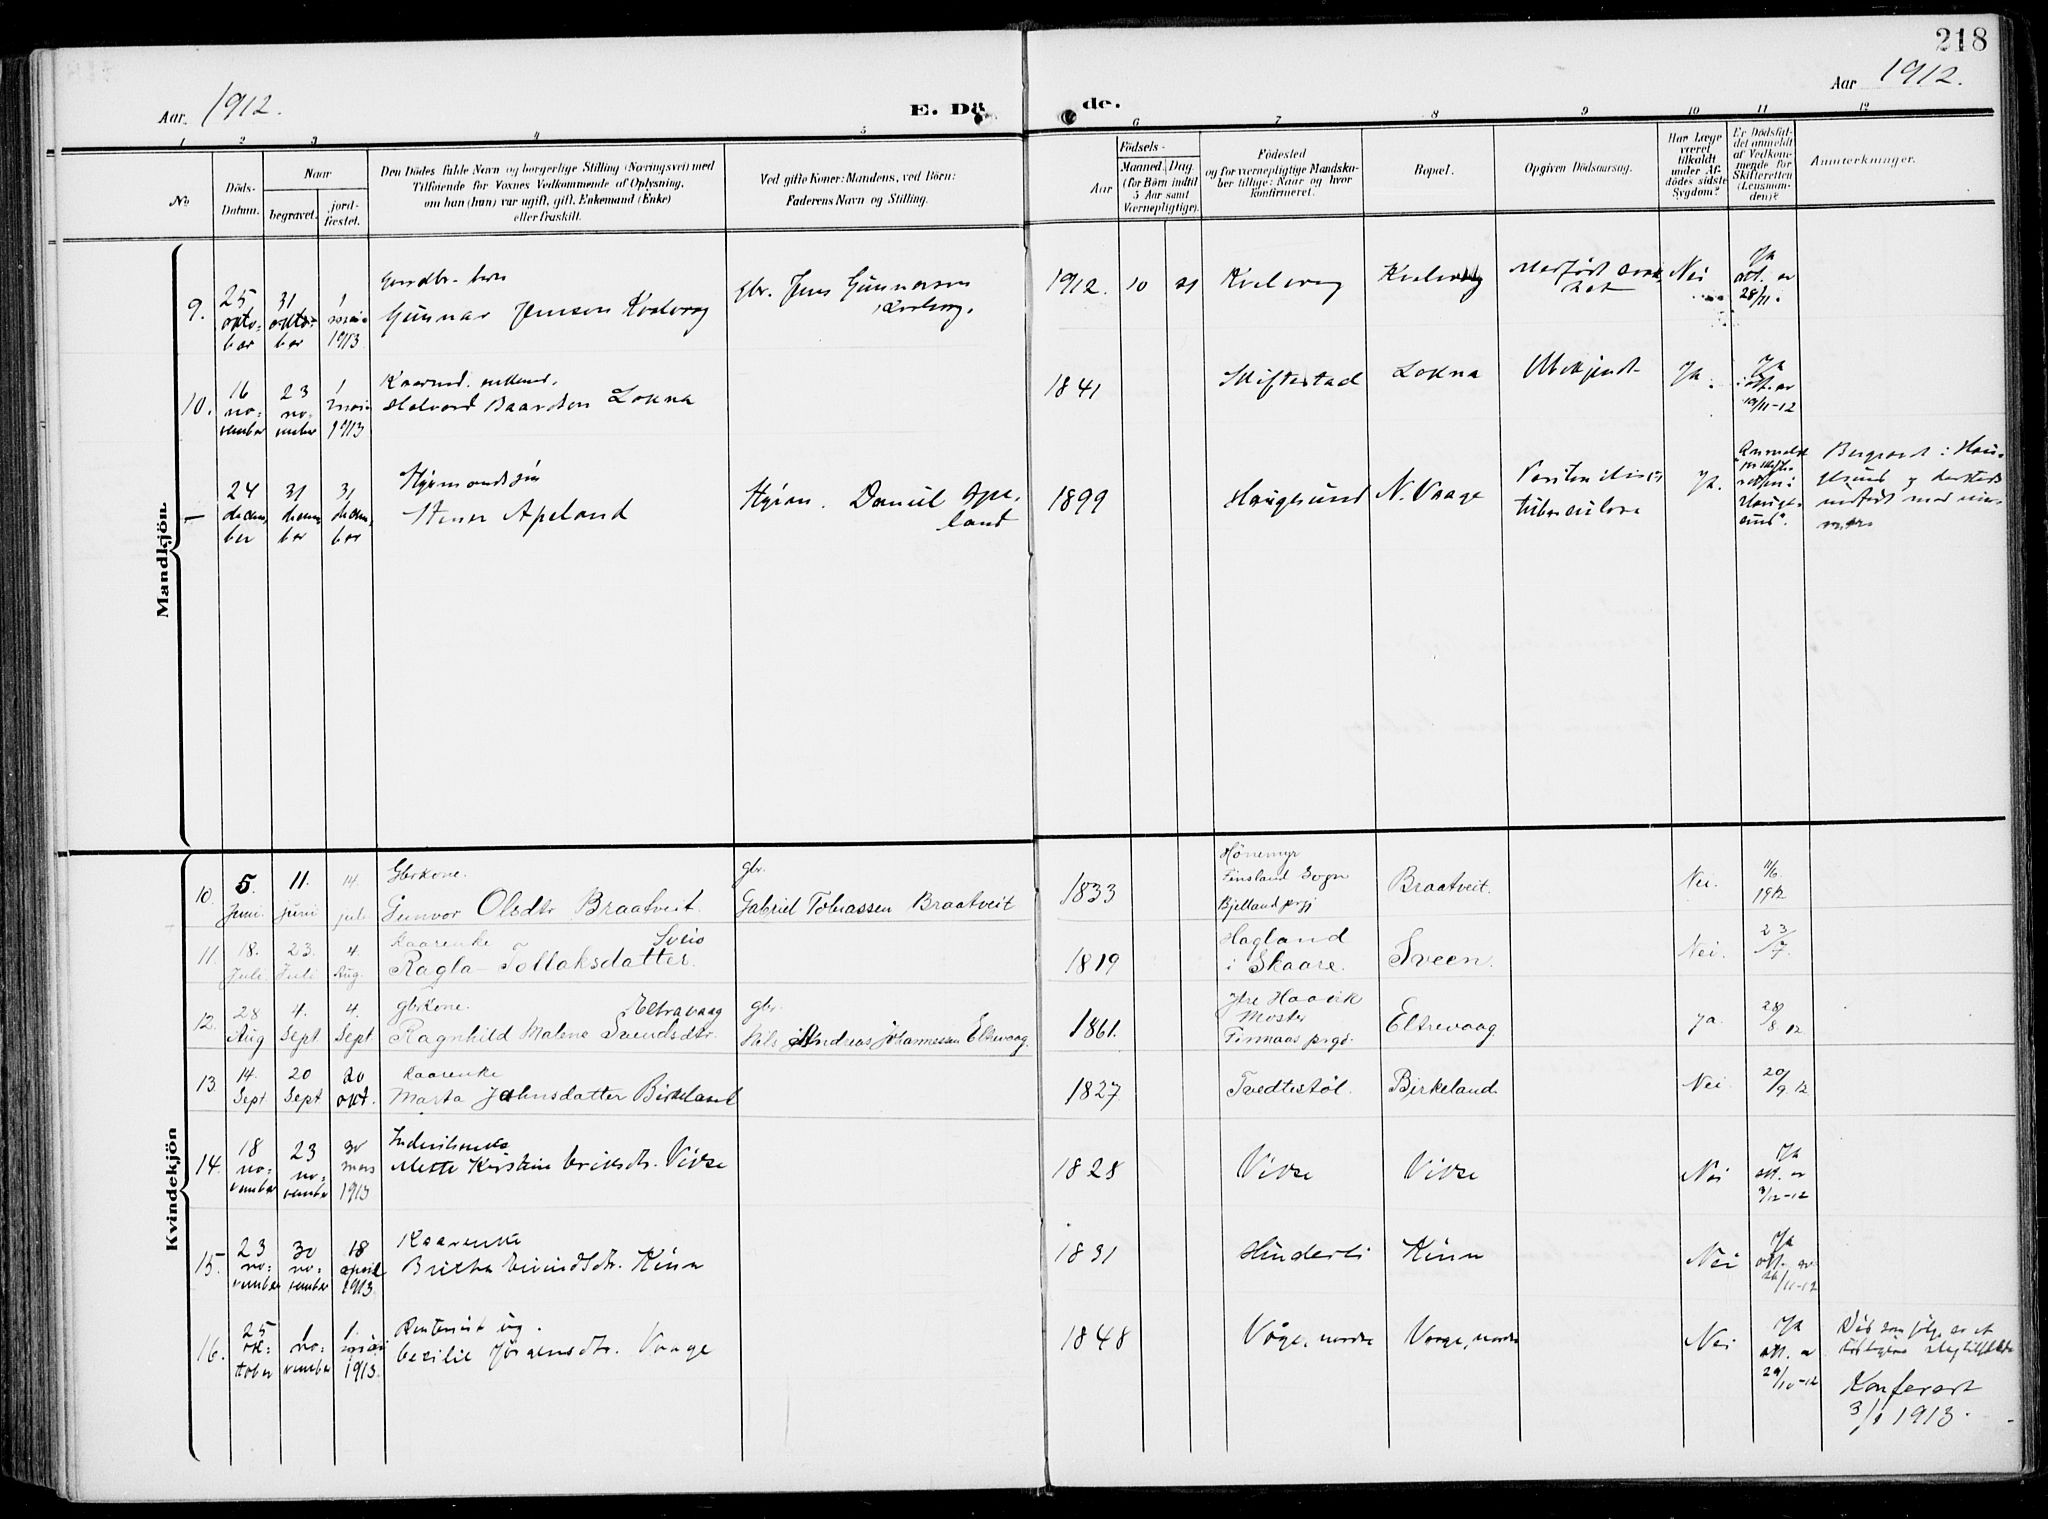 218
Aar 1912.
E. Dö de.
Aar 1912.
1 2 3 4 5 6 7 8 9 10 11 12
No
Döds-
Datum.
Naar
begravet.
jord-
fæstet.
Den Dödes fulde Navn og borgerlige Stilling (Næringsvei) med
Tilföiende for Voxnes Vedkommende af Oplysning,
om han (hun) var ugift, gift, Enkemand (Enke)
eller fraskilt.
Ved gifte Koner: Mandens, ved Börn:
Faderens Navn og Stilling.
Födsels-
Aar
Maaned. Dag.
(for Börn indtil
5 Aar samt
Værnepligtige).
Födested
og for værnepligtige Mandska-
ber tillige: Naar og hvor
konfirmeret.
Bopæl.
Opgiven Dödsaarsag.
Har Læge
været
tilkaldt
under Af-
dödes sidste
Sygdom?
Er Dödsfal-
det anmeldt
af Vedkom-
mende for
Skifteretten
(Lensman-
den)?
Anmerkninger.
Mandkjön.
9.
25
okto-
ber
31
okto-
ber
1
1913
Gunnar Jensen
gbr. Jens Gunnarsen
1912. 10 21
Nei
Ja
att. av
28/11.
10.
16
no-
vember
23
no-
vember
1
1913
Kaarmd. enkemd.
Halvard Baardsen Lokna
1841
Skiftestad
Lokna
Ubekjendt
Ja.
Ja
att. av
19/11-12
—
24
decem-
ber
31
decem-
ber
31
decem-
ber
Stener Apeland
Styrm. Daniel Ape-
land
1899
Haugesund
N. Vaage
tuberculosa
Ja.
Anmeldt
skifte-
retten i
Hauge-
sund".
Begravet i Hau-
gesund og dersteds
Kvindekjön
10
5.
Juni.
11.
Juni
14.
jul.
Gbrkone.
Gunvor Olsdtr Braatveit.
gbr.
Gabriel Tobiassen Braatveit
1833
Hönemyr
Finsland Sogn
Bjelland prgj
Braatveit.
Nei.
11/6
1912
11.
18.
Juli
23.
Juli
4.
Aug.
Kaarenke Sveio
Ragla Tollaksdatter.
1819
Hagland
i Skaare.
Sveen.
Nei.
23/7
12.
28
Aug
4.
Sept
4.
Sept
gbrkone. Eltravaag
Ragnhild Malene Svendsdtr.
gbr.
Nils Andreas Johannessen Eltrevaag.
1861.
Ytre Haavik
Moster
Finnaas prgd.
Eltrevaag
ja.
28/8 12
13.
14.
Sept
20
Sept
20
okt.
Kaarenke
Marta Johnsdatter Birkeland
1827.
Tvedtestöl.
Birkeland.
Nei.
20/9 12
14.
18
no-
vember
23
no-
vember
30
mars
1913
Mette Kirstine Eriksdtr. Vivse
1828
Vivse
Vivse
Nei
Ja
att. av
3/12-12
15.
23
no-
vember
30
no-
vember
18
april
1913
Kaarenke
Britha Eivindsdtr. Kinn
1831
Hinderli
Kinn
Nei
Ja
att. av
26/11-12
16.
25
ok-
tober
1
no-
vember
1.
1913
ug.
Cecilie Jörgensdtr. Vaage
1848
Våge, nordre
Vaage, nordre
Nei
Ja
att. av
29/10-12
Död som fölge av et
Konferert
3/1 1913.